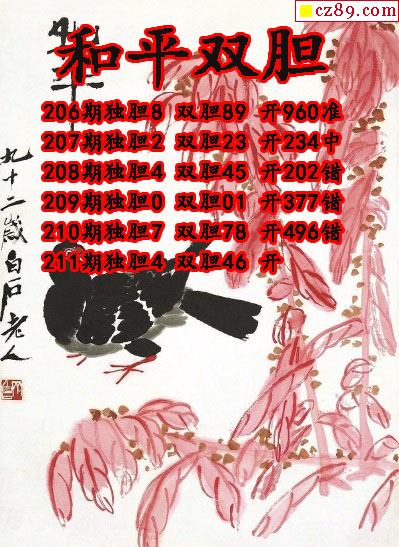 cz89.com
和平双胆
206期独胆8 双胆89 开960准
207期独胆2 双胆23 开234中
208期独胆4 双胆45 开202错
209期独胆0 双胆01 开377错
210期独胆7 双胆78 开496错
211期独胆4 双胆46 开
九十二岁白石老人